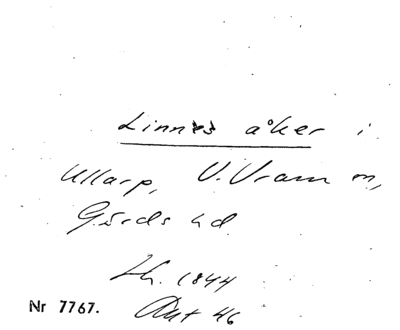 Linnés åker i
Ullarp, V. Vram sn,
Gärds hd
Lh. 1844
Ant 46
Nr 7767.